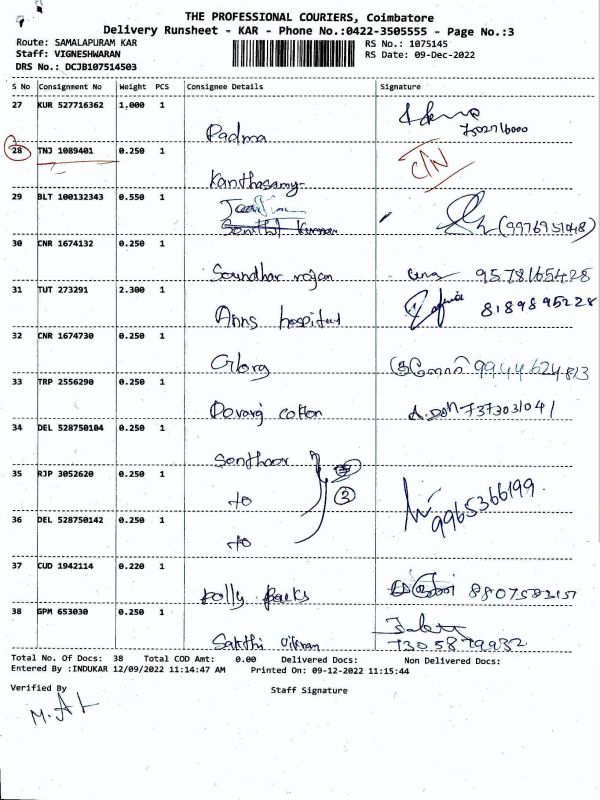 THE PROFESSIONAL COURIERS, Coimbatore
Delivery Runsheet - KAR - Phone No.:0422-3505555 - Page No.:3
Route: SAMALAPURAM KAR
RS No.: 1075145
Staff: VIGNESHWARAN
RS Date: 09-Dec-2022
DRS No.: DCJB107514503
S No Consignment No Weight PCS Consignee Details Signature
27 KUR 527716362 1.000 1
Padma
28 TNJ 1089401 0.250 1 C/N
Kanthasamy
29 BLT 100132343 0.550 1
(9976951048)
30 CNR 1674132 0.250 1
Soundhar rajan 9578165428
31 TUT 273291 2.300 1
Anns hospital 8189895228
32 CNR 1674730 0.250 1
9944624813
33 TRP 2556290 0.250 1
Devaraj cotton 7373031041
34 DEL 528750104 0.250 1
35 RJP 3052620 0.250 1
to 3 9965366199
36 DEL 528750142 0.250 1
to
37 CUD 1942114 0.220 1
38 GPM 653030 0.250 1
Sakthi 7305879932
Total No. Of Docs: 38 Total COD Amt: 0.00 Delivered Docs: Non Delivered Docs:
Entered By :INDUKAR 12/09/2022 11:14:47 AM Printed On: 09-12-2022 11:15:44
Verified By
Staff Signature